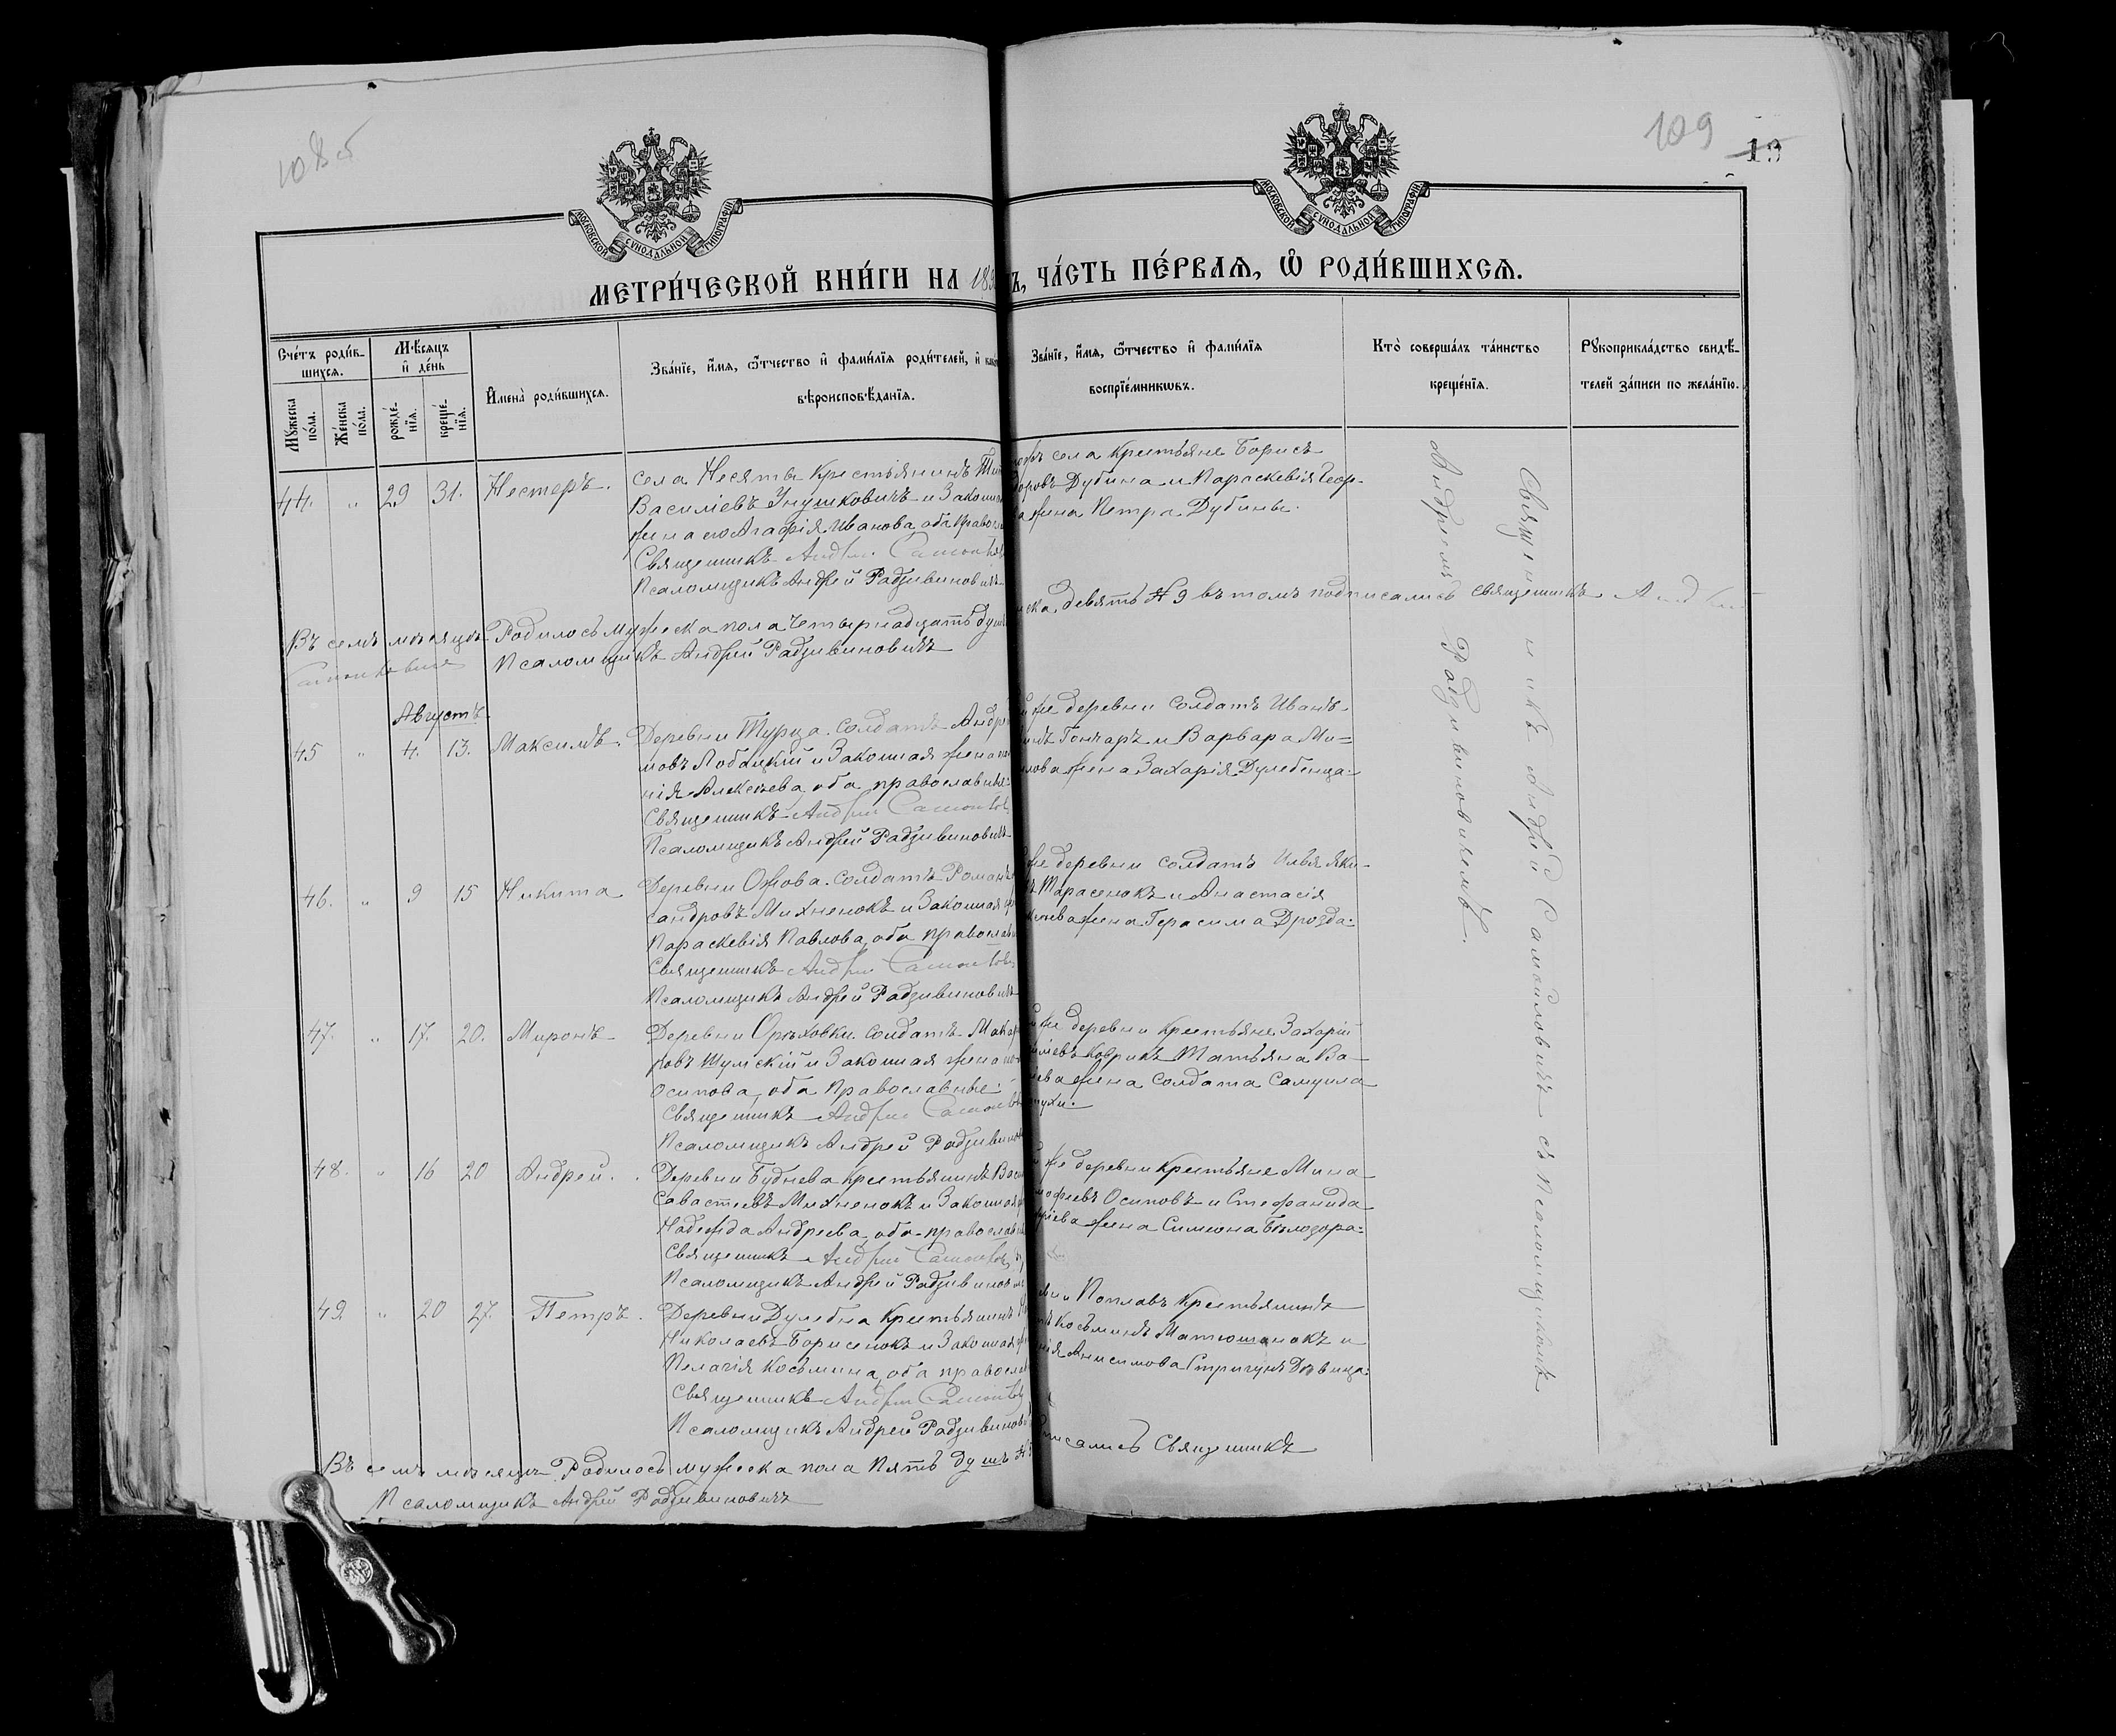 108 об
109
19
МОСКОВСКОЙ СѴНОДАЛЬНОЙ ТИПОГРАФІИ
МОСКОВСКОЙ СѴНОДАЛЬНОЙ ТИПОГРАФІИ
МЕТРИ́ЧЕСКОЙ КНИ́ГИ НА 18 Ъ, ЧА́СТЬ ПЕ́РВАѦ, Ѽ РОДИ́ВШИХСѦ.
Сче́тъ роди́в-
шихсѧ.
Мꙋ́жеска по́ла.
Же́нска по́ла.
Мѣ́сѧцъ и҆ де́нь
рожде́-
нїѧ.
креще́-
нїѧ.
И҆мена̀ роди́вшихсѧ.
Зва́нїе, и҆́мѧ, ѻ҆́тчество и҆ фами́лїѧ роди́телей, и҆
вѣроисповѣ́данїѧ.
Зва́нїе, и҆́мѧ, ѻ҆́тчество и҆ фами́лїѧ
воспрїе́мникωвъ.
Кто̀ соверша́лъ та́инство
креще́нїѧ.
Рꙋкоприкла́дство свидѣ́-
телей за́писи по жела́нїю.
44. " 29 31. Несторъ.
Села Несяты Крестьянинъ Тит
Василіевъ Знушковичъ и Законная
жена его Агафія Иванова, оба правосл
Священникъ Андрей Самойлов
Псаломщикъ Андрей Радзивиновичъ
села Крестьяне Борисъ
Дубина и Параскевія Геор-
жена Петра Дубины.
Въ семъ мѣсяцѣ Родилось мужеска пола четырнадцать душъ
девять № 9 въ томъ подписались Священникъ Андрей
Самойловичъ Псаломщикъ Андрей Радзивиновичъ
Августъ
45 " 4. 13. Максимъ.
Деревни Турца. солдатъ Андрей
мовъ Лобацкій и Законная жена
нія Алексѣева, оба православные:
Священникъ Андрей Самойлов
Псаломщикъ Андрей Радзивиновичъ
же деревни солдатъ Иванъ
Гончаръ и Варвара Ми=
лова жена Захарія Дулебенца.
46. " 9 15 Никита
Деревни Ожова. солдатъ Романъ
сандровъ Михненокъ и Законная
Параскевія Павлова, оба православ
Священникъ Андрей Самойлов
Псаломщикъ Андрей Радзивиновичъ
же деревни солдатъ Илья Яки-
Тарасенокъ и Анастасія
жена Герасима Дрозда.
47. " 17. 20. Миронъ
Деревни Орѣховки. солдатъ Макар
ровъ Шумскій и Законная жена
Осипова, оба Православные:
Священникъ Андрей Самойлов
Псаломщикъ Андрей Радзивинов
же деревни Крестьяне Захарій
Коврикъ Татьяна Ва-
жена солдата Самуила
48. " 16 20 Андрей.
Деревни Буднева Крестьянинъ Васи
Савастеевъ Михненокъ и Законная
Надежда Андреева, оба православ
Священникъ Андрей Самойлов
Псаломщикъ Андрей Радзивинов
же деревни Крестьяне Мина
мофеевъ Осиповъ и Стефанида
жена Симеона Бѣлозора.
49 " 20 27. Петръ.
Деревни Дулебна Крестьянинъ
Николаевъ Борисенокъ и Законная
Пелагія Косьмина, оба правосла
Священникъ Андрей Самойлов
Псаломщикъ Андрей Радзивинов
Поплавъ Крестьянинъ
Косьминъ Матюшанокъ и
Анисимова Стригунъ Дѣвица.
Въ семъ мѣсяцѣ Родилось мужеска пола пять душъ
писались Священникъ
Псаломщикъ Андрей Радзивиновичъ
Священникъ Андрей Самойловичъ съ Псаломщикомъ
Андреемъ Радзивиновичемъ.